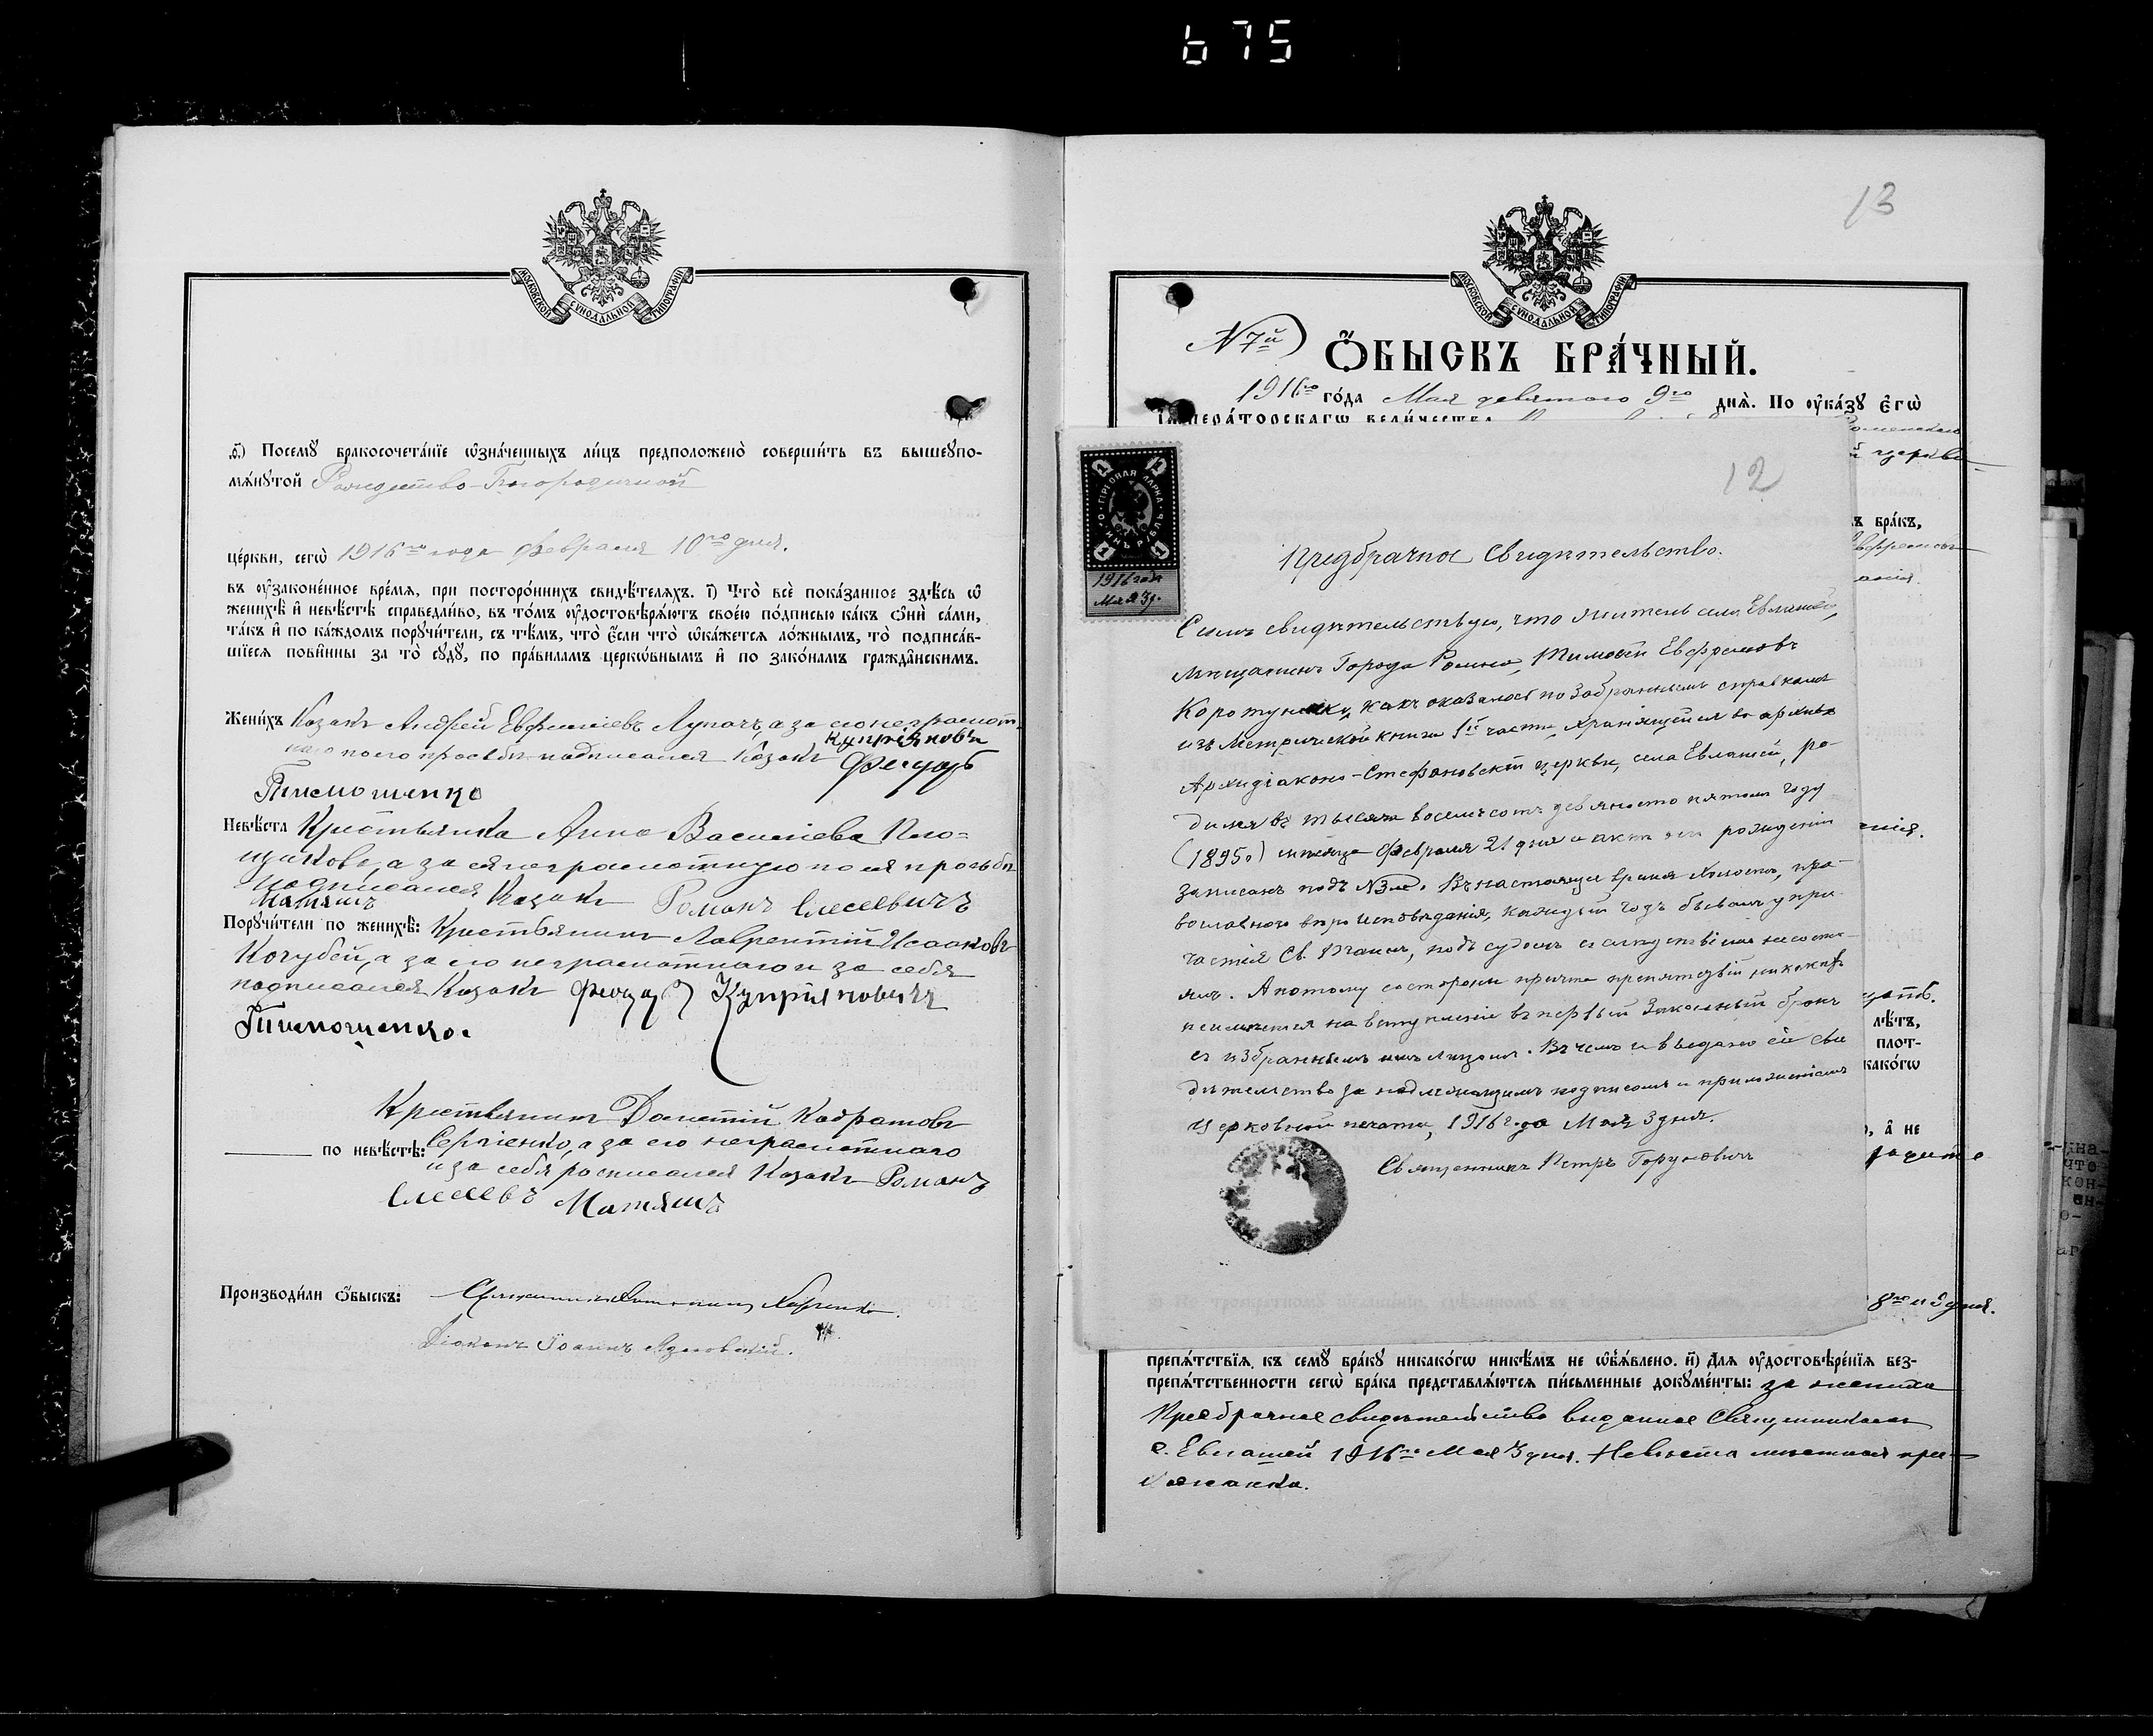 675
МОСКОВСКОЙ СѴНОДАЛЬНОЙ ТИПОГРАФІИ
ѳ҃) Посемꙋ бракосочета́нїе ѡ҆зна́ченныхъ ли́цъ предположено̀ соверши́ть въ вышеꙋпо-
мѧ́нꙋтой Рождество-Богородичной
це́ркви, сегѡ̀ 1916го года февраля 10го дня.
въ ᲂу҆законе́нное вре́мѧ, при посторо́ннихъ свидѣ́телѧхъ. і҃) Что̀ всѐ пока́занное здѣ́сь ѡ҆
женихѣ̀ и҆ невѣ́стѣ справедли́во, въ то́мъ ᲂу҆достовѣрѧ́ютъ свое́ю по́дписью ка́къ ѻ҆нѝ са́ми,
та́къ и҆ по ка́ждомъ порꙋчи́тели, съ тѣ́мъ, что̀ є҆́сли что̀ ѡ҆ка́жетсѧ ло́жнымъ, то̀ подписа́в-
шїесѧ пови́нны за то̀ сꙋдꙋ̀, по пра́виламъ церкѡ́внымъ и҆ по зако́намъ гражда̑нскимъ.
Жени́хъ Козакъ Андрей Евфиміевъ Лупачъ, а за его неграмот-
наго по его просьбѣ подписался Козакъ Федоръ Купріяновъ
Тимошенко
Невѣ́ста Крестьянка Анна Василіева
а за ея неграмотную по ея просьбѣ
подписался Козакъ Романъ Елесеевичъ
Матяшъ
Порꙋчи́тели по женихѣ̀: Крестьянинъ Лаврентій Исааковъ
Кочубей, а за его неграмотнаго и за себя
подписался Козакъ Федоръ Купріяновичъ
Тимошенко.
по невѣ́стѣ: Крестьянинъ Дометій Кодратовъ
Сергіенко, а за его неграмотнаго
и за себя росписался Козакъ Романъ
Елесеевъ Матяшъ
Производи́ли ѻ҆́быскъ: Священникъ
Діаконъ Іоаннъ
13
МОСКОВСКОЙ СѴНОДАЛЬНОЙ ТИПОГРАФІИ
N 7й
Ѻ҆́БЫСКЪ БРА́ЧНЫЙ.
1916го го́да Мая девятого 9го днѧ̀. По ᲂу҆ка́зꙋ є҆гѡ̀
І҆мпера́торскагѡ вели́чества
церкви
въ бра́къ,
лѣ́тъ,
плот-
како́гѡ
а҆ не
ГЕРБОВАЯ МАРКА
ОДИНЪ РУБЛЬ
1 1 1 1
1916 года
Мая 3 д.
12
Предбрачное Свидѣтельство.
Симъ свидѣтельствую, что житель села Евлашей,
мѣщанинъ Города Ромна, Тимоѳей Евфремовъ
какъ оказалось по Забраннымъ справкамъ
изъ Метрической книги 1й части, хранящейся въ архивѣ
Архидіаконо-Стефановской церкви, села Евлашей, ро-
дился въ тысяча восемьсотъ девяносто пятомъ году
(1895 г) мѣсяца Февраля 21 дня и актъ его рожденія
записанъ подъ №. Въ настоящее время холостъ, пра-
вославного вѣро Исповѣданія, каждый годъ бывалъ у при-
частія Св. Таинъ, подъ судомъ и слѣдствіемъ не состо-
ялъ. А потому со стороны причта препятствій никакихъ
не имѣется на вступленіе въ первый Законный бракъ
съ избраннымъ имъ лицомъ. Въ чемъ и выдано сіе сви
дѣтельство за надлежащимъ подписомъ и приложеніемъ
Церковной печати, 1916 года Мая 3 дня.
Священникъ Петръ Горуновичъ
препѧ́тствїѧ къ семꙋ̀ бра́кꙋ никако́гѡ никѣ́мъ не ѡ҆б̾ѧ́влено. и҃) Для ᲂу҆достовѣре́нїѧ без-
препѧ́тственности сегѡ̀ бра́ка представлѧ́ютсѧ пи́сьменные докꙋме́нты: за жениха
Предбрачное свидѣтельство выданное Священникомъ
с. Евлашей 1916го Мая 3 дня. Невѣста мѣстная при-
хожанка.